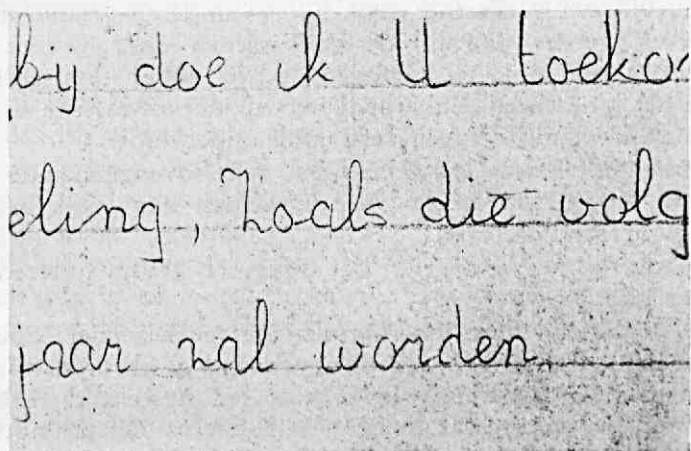 bij doe ik U toeko
eling, zoals die volg
jaar zal worden.